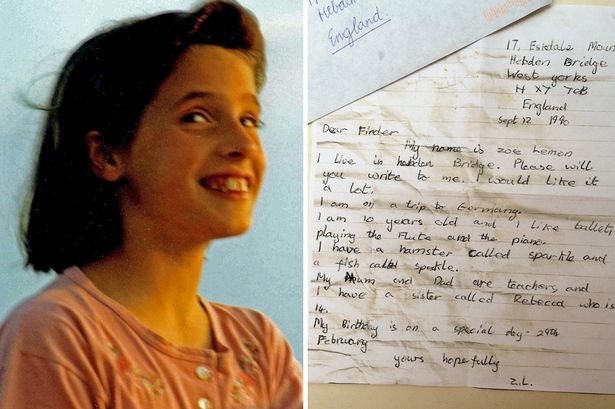 Hebden
England.
17, Eskdale Moun
Hebden Bridge
West yorks
H X7 7
England
Sept 12 1990
Dear Finder
My name is zoe Lemon
I live in hebden Bridge. Please will
you write to me. I would like it
a lot.
I am on a trip to Germany.
I am 10 years old and I like ballet,
playing the flute and the piano.
I have a hamster called sparkle and
a fish called speckle.
My Mum and Dad are teachers and
I have a sister called Rebecca who is
14.
My Birthday is on a special day- 29th
February
yours hopefully
Z.L.